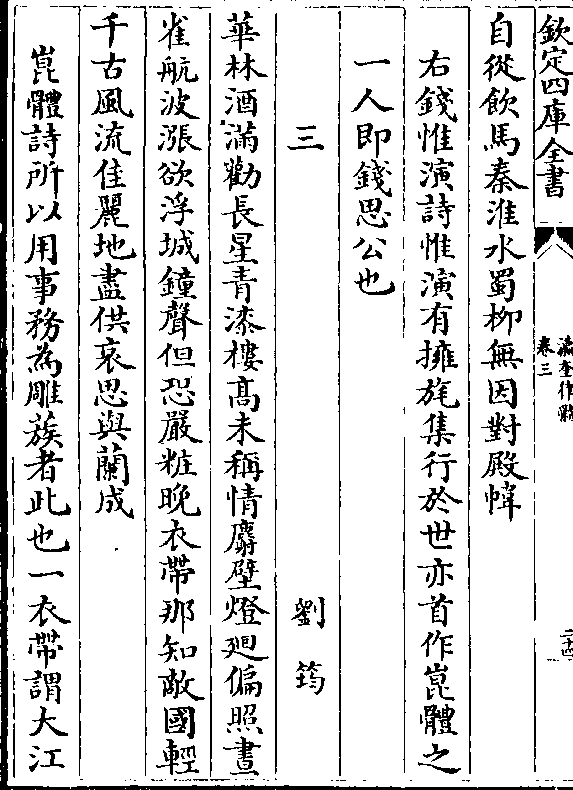 欽定四庫全書
瀛奎律髓
卷三
二十四
自從飲馬秦淮水蜀栁無因對殿幃
右錢惟演詩惟演有擁旄集行於世亦首作崑體之
一人即錢思公也
三 劉筠
華林酒滿勸長星青漆樓髙未稱情麝壁燈廻偏照晝
雀航波漲欲浮城鐘聲但恐嚴粧晚衣帶那知敵國輕
千古風流佳麗地盡供哀思與蘭成
崑體詩所以用事務為雕蔟者此也一衣帶謂大江